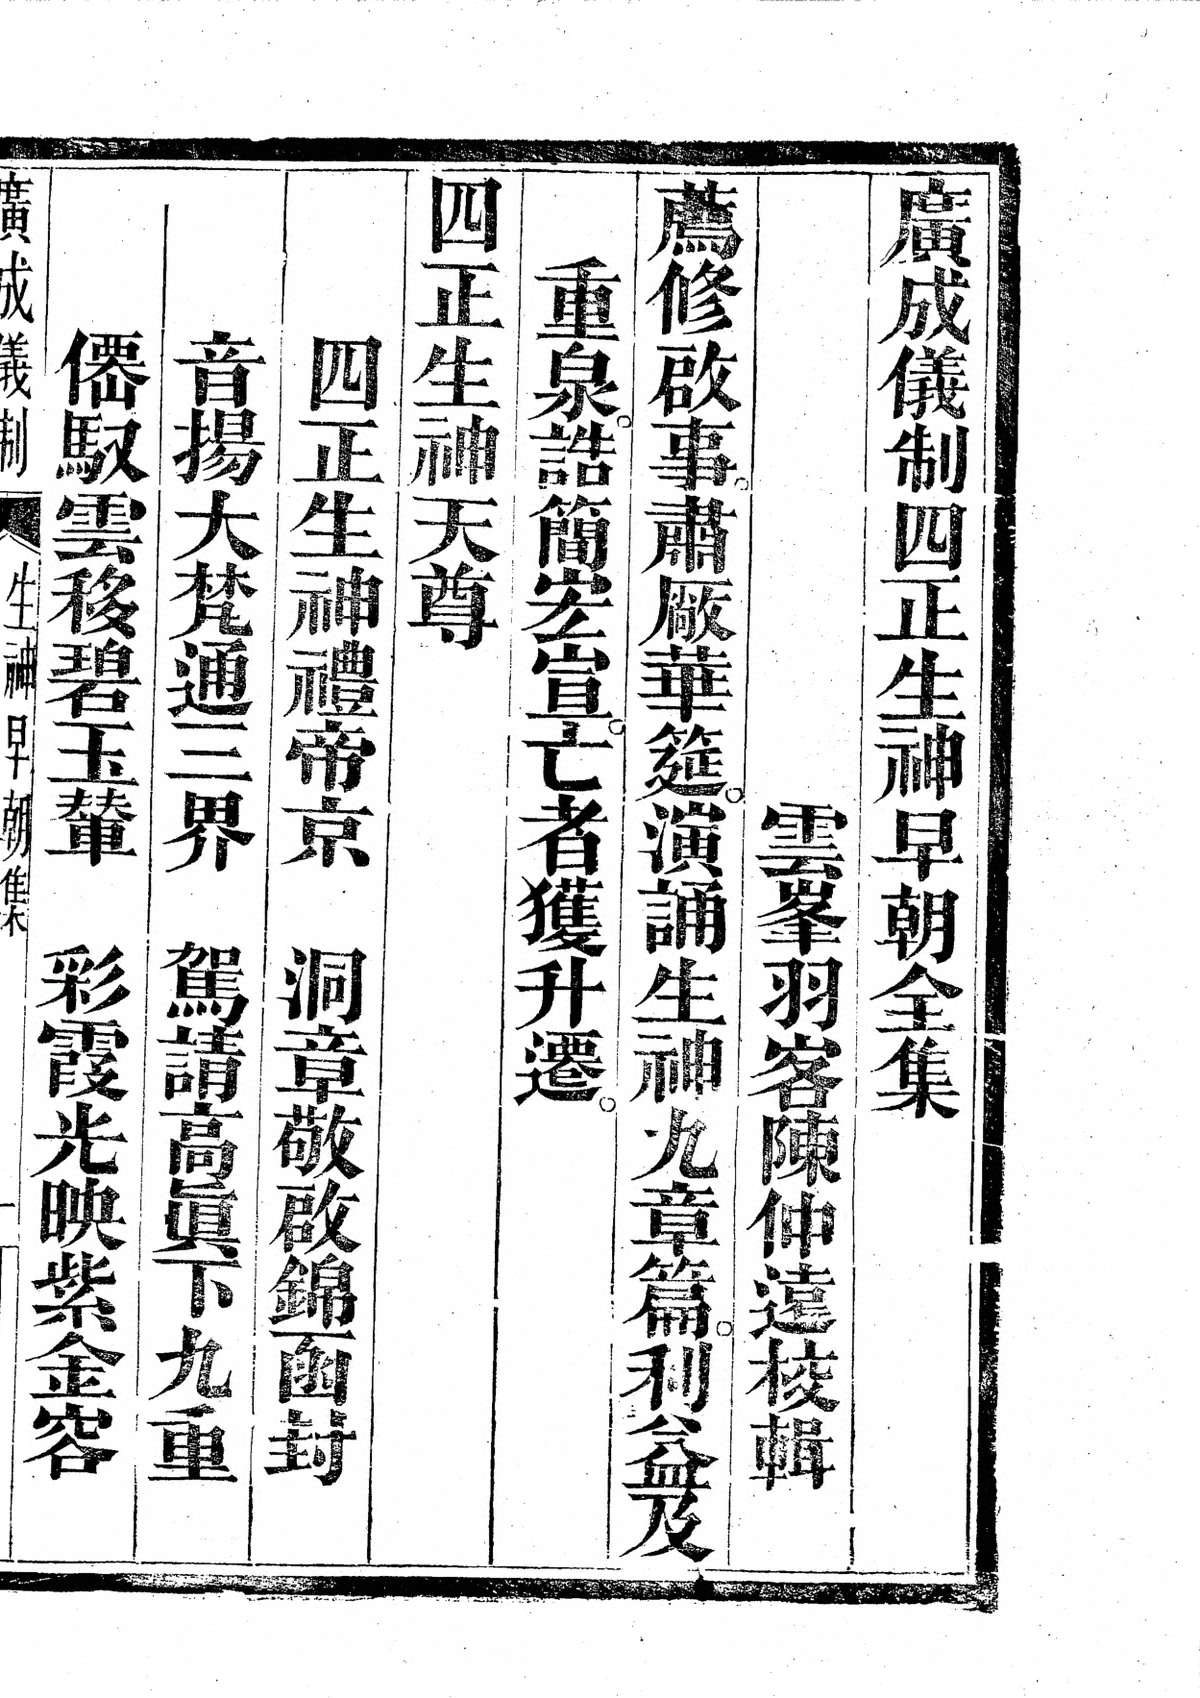 廣成儀制四正生神早朝全集
雲峯羽客陳仲遠校輯
薦修啟事。肅厰華筵。演誦生神九章篇。利益及
重泉。誥簡宏宣。亡者獲升遷。
四正生神天尊
四正生神禮帝京　洞章敬啟錦函封
音揚大梵通三界　駕請高眞下九重
僊馭雲移碧玉輦　彩霞光映紫金容
廣成儀制　生神早朝集　一